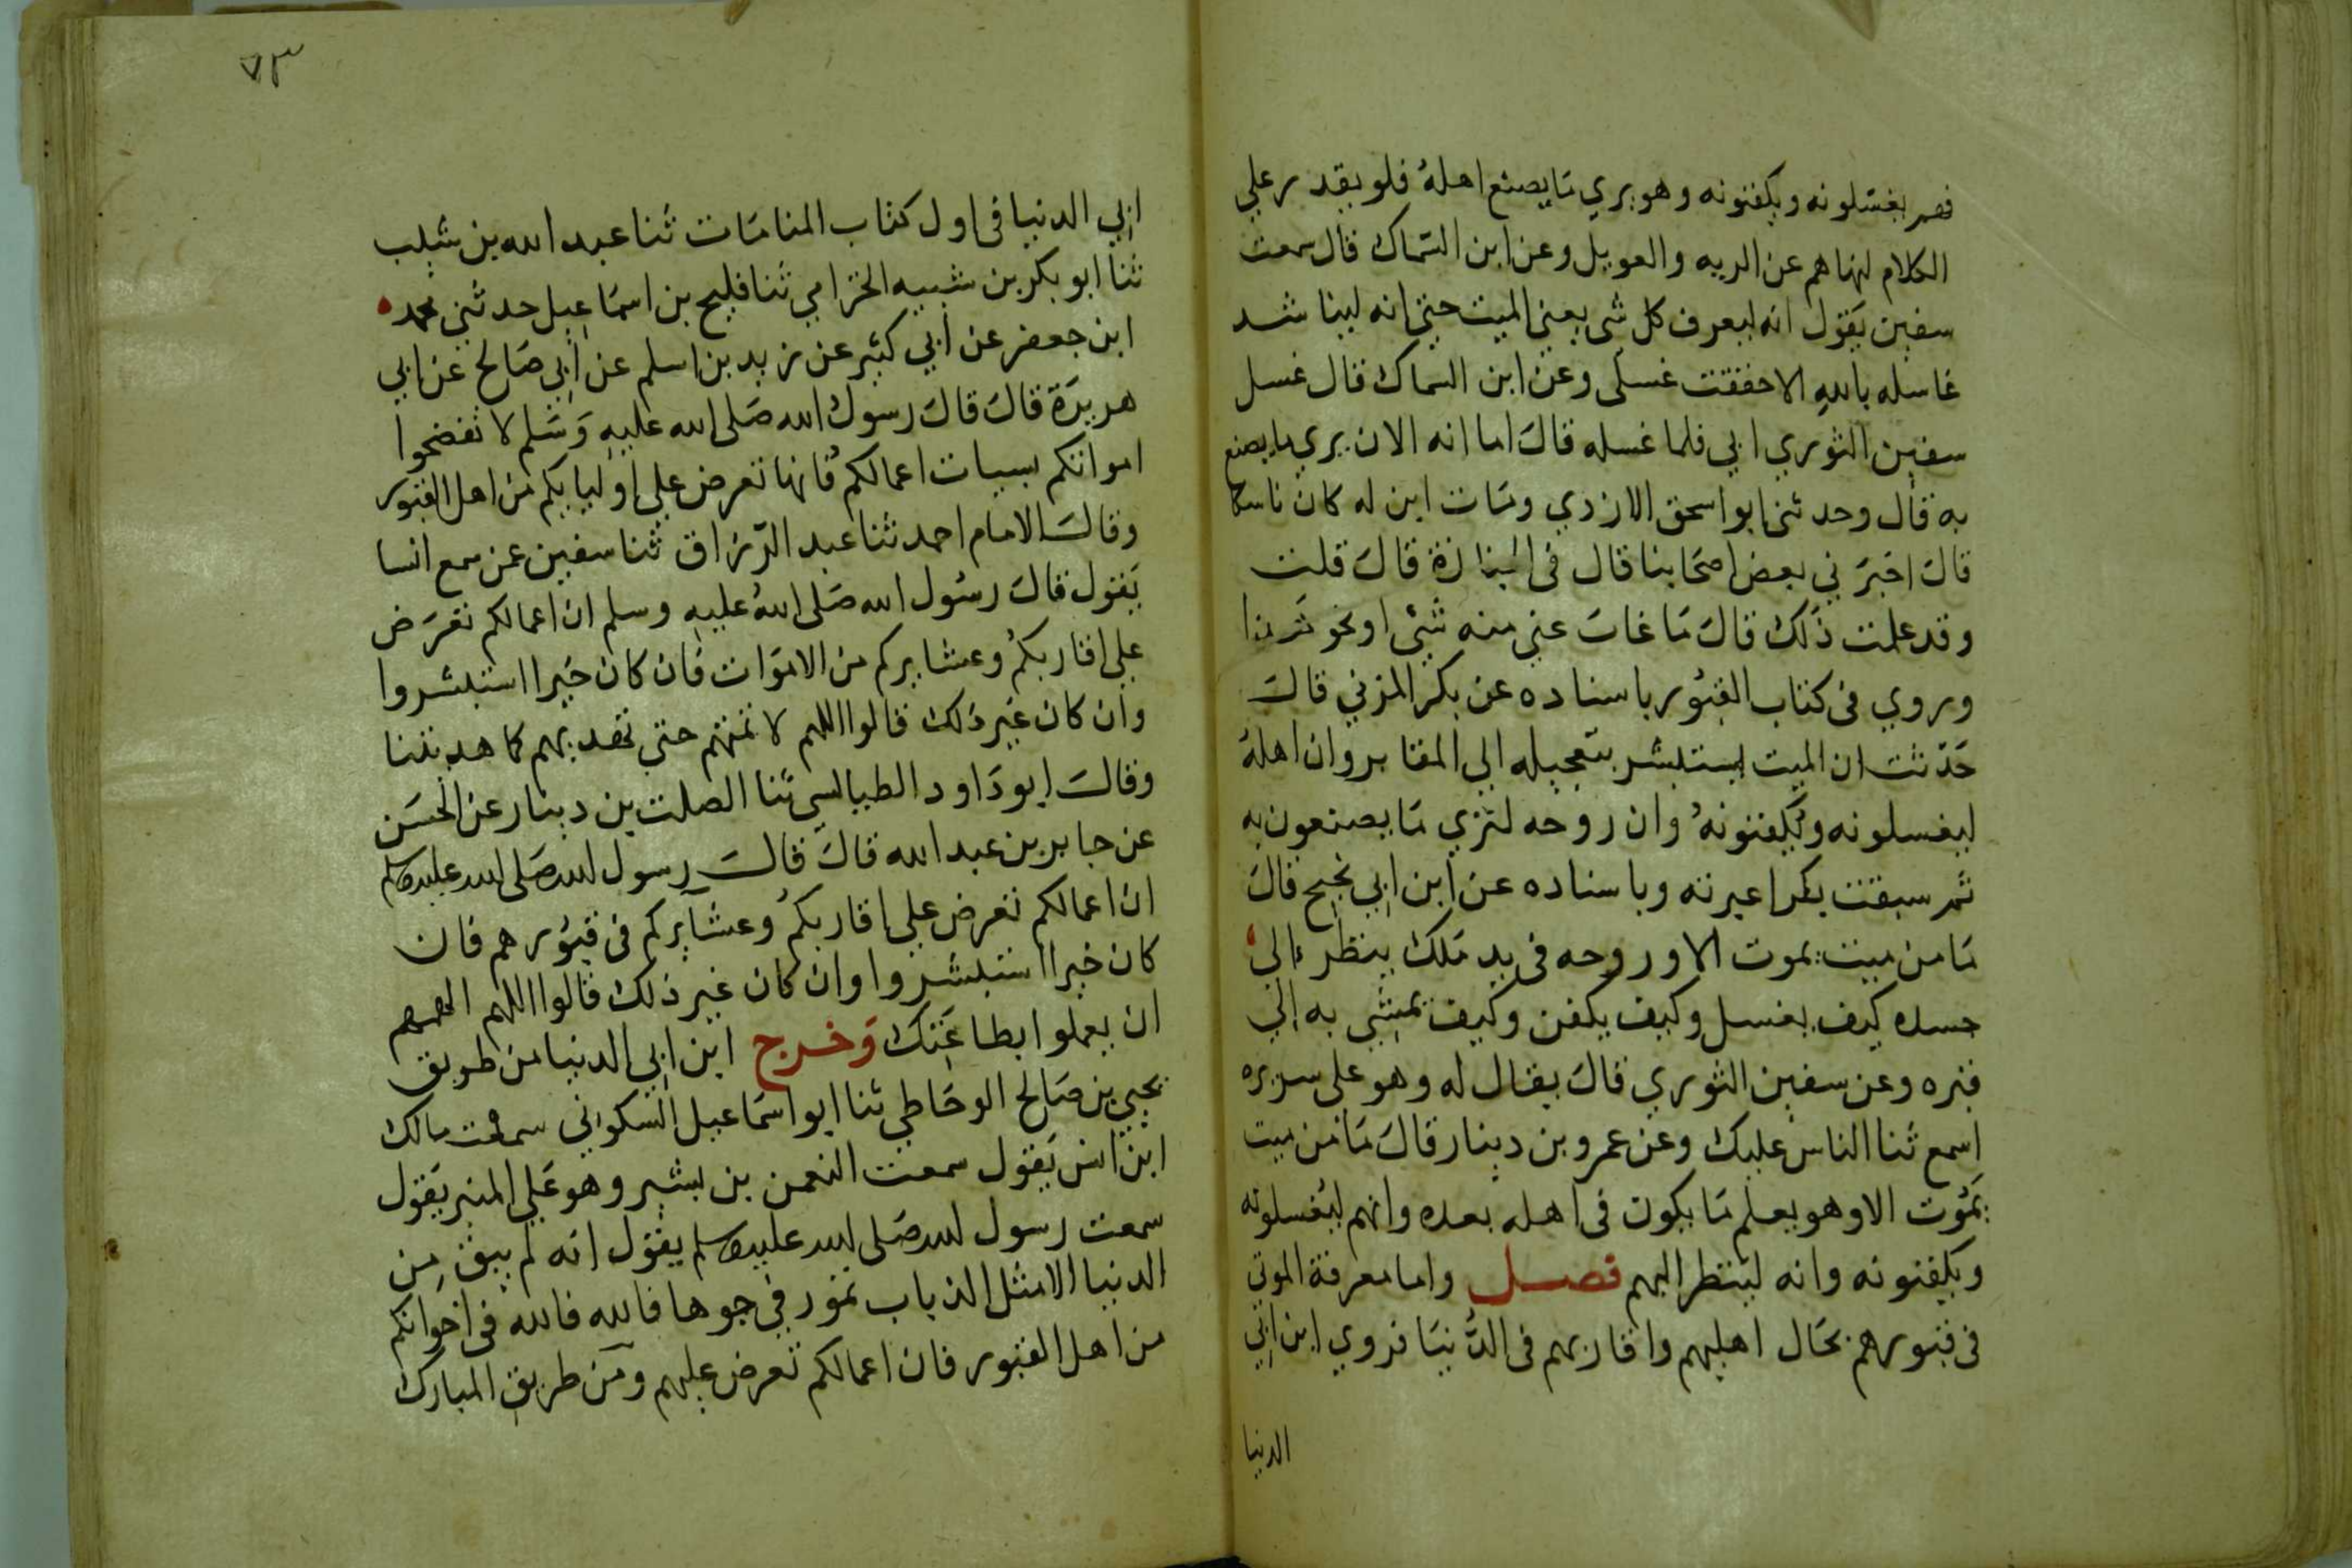 فهم يغسلونه ويكفنونه وهو يري مَا يصنع اهلهُ فلو يقدر علي
الكلام لنهاهم عن الرنه والعويل وعن ابن السّماك قال سمعت
سفين يَقول انه ليعرف كل شى يعني الميت حتي انه ليناشد
غاسله باللهِ الا خففت غسلى وعن ابن السماك قال غسل
سفين الثوري ابي فلما غسله قالَ اما انه الان يري ما يصنع
به قال وحدثنى ابو اسحق الازدي ومَات ابن له كان ناسكا
قالَ اخبَرَني بعض اصحَابنا قال فى الجنازة قالَ قلت
وقد علمت ذَلك قالَ مَا غابَ عني منه شئى او نحو هذا
وروي فى كتاب القبُور باسناده عن بكر المزني قالَ
حَدّثت ان الميت ليستبشر بتعجيله الي المقابر وان اهلهُ
ليغسلونه ويُكفنونهُ وان روحه لتري مَا يصنعون به
ثم سبقت بكرا عبرته وباسناده عن ابن ابي نجيح قالَ
مَا من ميت يموت الا وروحه فى يد مَلك ينظر الي
جسده كيف يغسل وكيف يكفن وكيف يمشي به الي
قبره وعن سفين الثوري قالَ يقال له وهو على سريره
اسمع ثنا الناس عليك وعن عمرو بن دينار قالَ مَا من ميت
يمَوُت الا وهو يعلم مَا يكون فى اهله بعده وانهم ليُغسلونه
ويكفنونه وانه لينظر اليهم فصل واما معرفة الموتي
فى قبورهم بحَال اهليهم واقاربهم فى الدُّنيَا فروي ابن ابي
الدنيا
٧٣
ابي الدنيا فى اول كتاب المنامَات ثنا عبد الله بن شبيب
ثنا ابو بكر بن شيبه الخزامي ثنا فليح بن اسمَاعيل حدثني محمد
ابن جعفر عن ابي كثير عن زيد بن اسلم عن ابي صَالح عن ابي
هريرَة قالَ قالَ رسولُ الله صَلى الله عليهِ وَسَلم لا تفضحوا
امواتكم بسيات اعمالكم فانها تعرض علي اوليايكم من اهل القبور
وقالَ الامام احمد ثنا عبد الرّزاق ثنا سفين عمن سمع انسا
يَقول قالَ رسُول الله صَلى اللهُ عليهِ وسلم ان اعمالكم تعرَض
علي اقاربكُم وعشايركم من الاموَات فان كان خيرا استبشروا
وان كان غير ذلك قالوا اللهم لا تمتهم حتي تهديهم كما هديتنا
وقالَ ابو دَاود الطيالسي ثنا الصلت بن دينار عن الحسَن
عن جابر بن عبد الله قالَ قالَ رسول الله صَلى الله عليه وسلم
ان اعمالكم تعرض علي اقاربكُم وعشايركم فى قبُورهم فان
كان خيرا استبشروا وان كان غير ذلك قالوا اللهم الهمهم
ان يعملوا بطاعَتك وَخرج ابن ابي الدنيا من طريق
يحيي بن صَالح الوحَاطي ثنا ابو اسمَاعيل السكوني سمعت مالك
ابن انس يَقول سمعت النعمن بن بشير وهو عَلي المنبر يَقول
سمعت رسول الله صَلى الله عليه وسلم يقول انه لم يبق مِن
الدنيا الا مثل الذباب تمور في جوها فالله فالله فى اخوانكم
من اهل القبور فان اعمالكم تعرض عليهم ومَن طريق المبارك